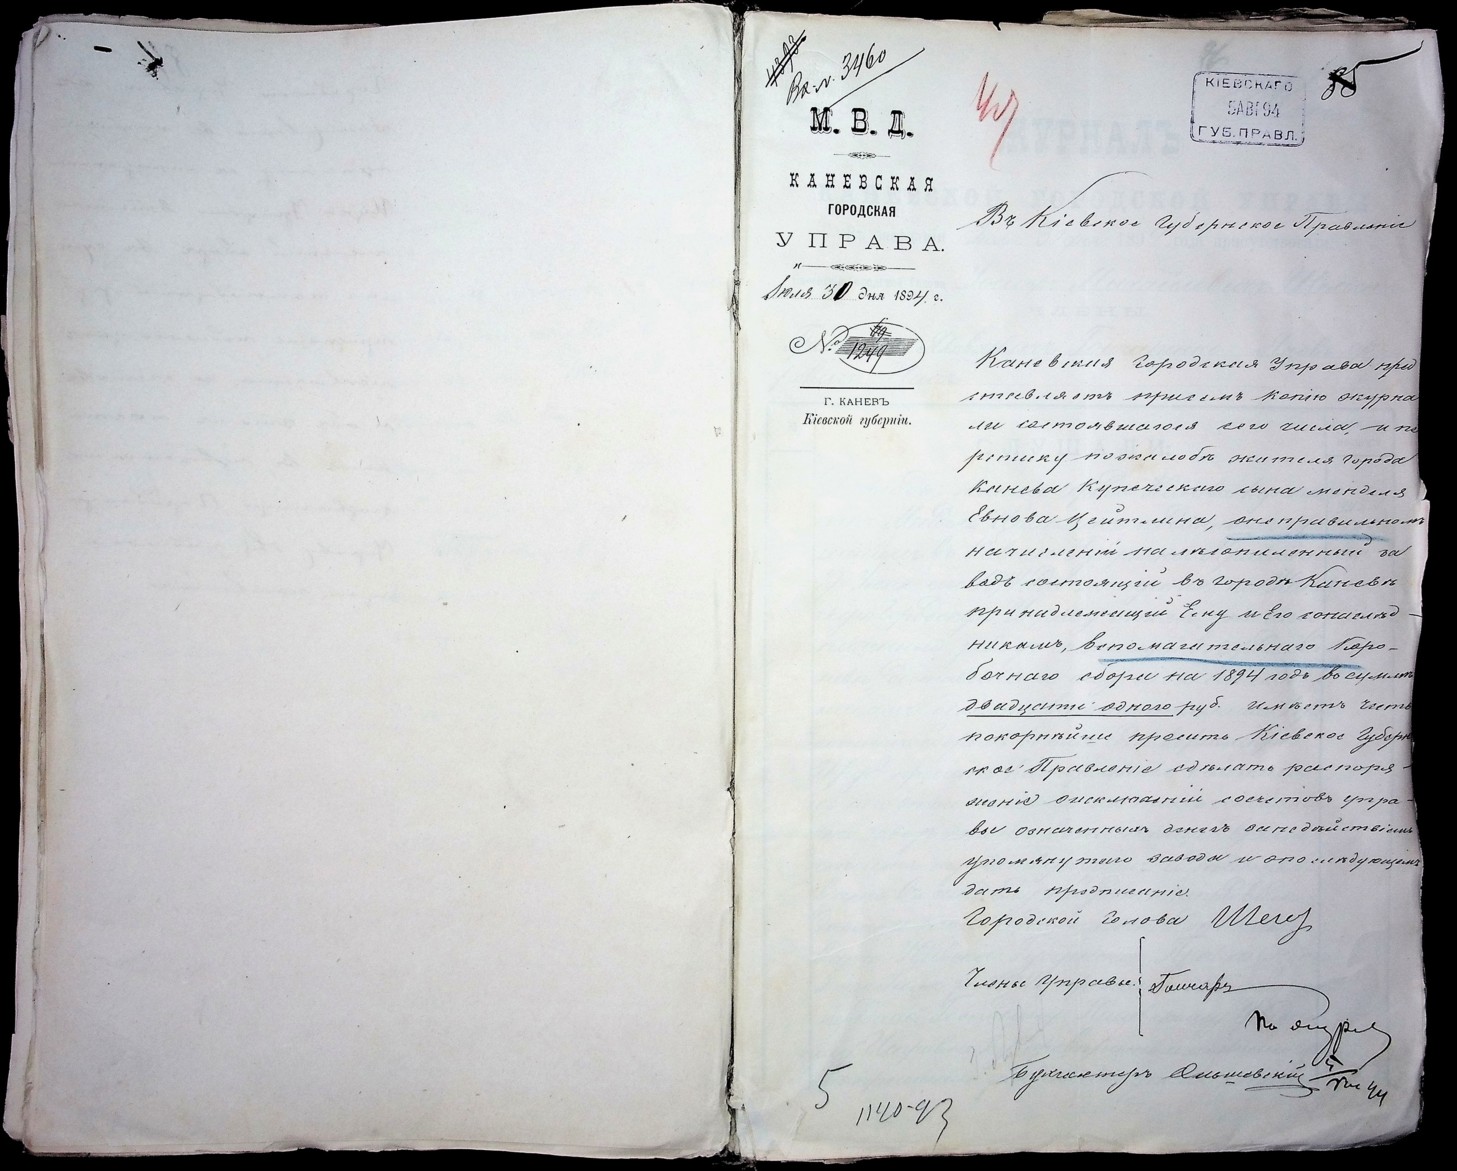 Вх. № 3460
85
КІЕВСКАГО
5 АВГ 94
ГУБ. ПРАВЛ.
М. В. Д.
КАНЕВСКАЯ
ГОРОДСКАЯ
УПРАВА.
Іюля 30 дня 1894 г.
№ 1249
Г. КАНЕВЪ
Кіевской губерніи.
Въ Кіевское Губернское Правленіе
Каневская Городская Управа пред
ставляетъ присемъ копію журна
ла состоявшагося сего числа, и пе
реписку пожалобѣ жителя города
Канева Купеческаго сына Менделя
Евнова Цейтлина, онеправильномъ
начисленіи на лѣсопиленный за
водъ состоящій въ городѣ Каневѣ
принадлежащій Ему и Его сонаслѣд-
никамъ, вспомагительнаго Коро-
бочнаго сбора на 1894 годъ въ суммѣ
двадцати одного руб. имѣетъ честь
покорнѣйше просить Кіевское Губерн
ское Правленіе сдѣлать распоря-
женіе оисключеніи сосчетовъ упра-
вы означенныхъ денегъ занедѣйствіемъ
упомянутаго завода и опослѣдующемъ
дать предписаніе.
Городской Голова
Члены Управы: Гончаръ
Бухгалтеръ Ольшевскій
5
1140-93